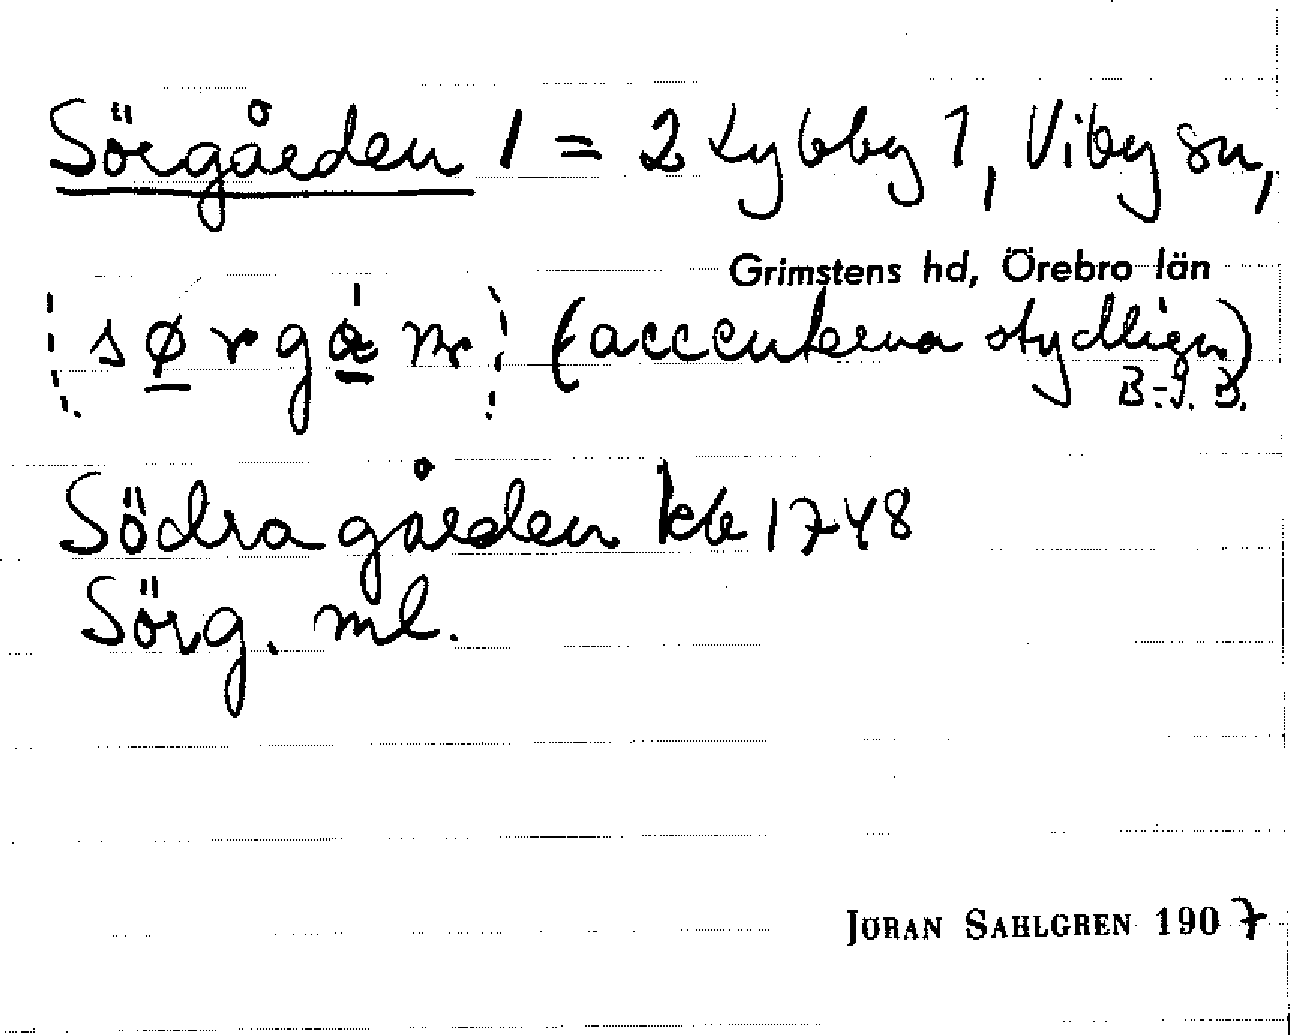 Sörgården 1 = 2 Lybby 1, Viby sn,
Grimstens hd, Örebro län
(accenterna otydliga)
B.-I. B.
Södra gården kb 1748
Sörg. ml.
JÖRAN SAHLGREN 1907